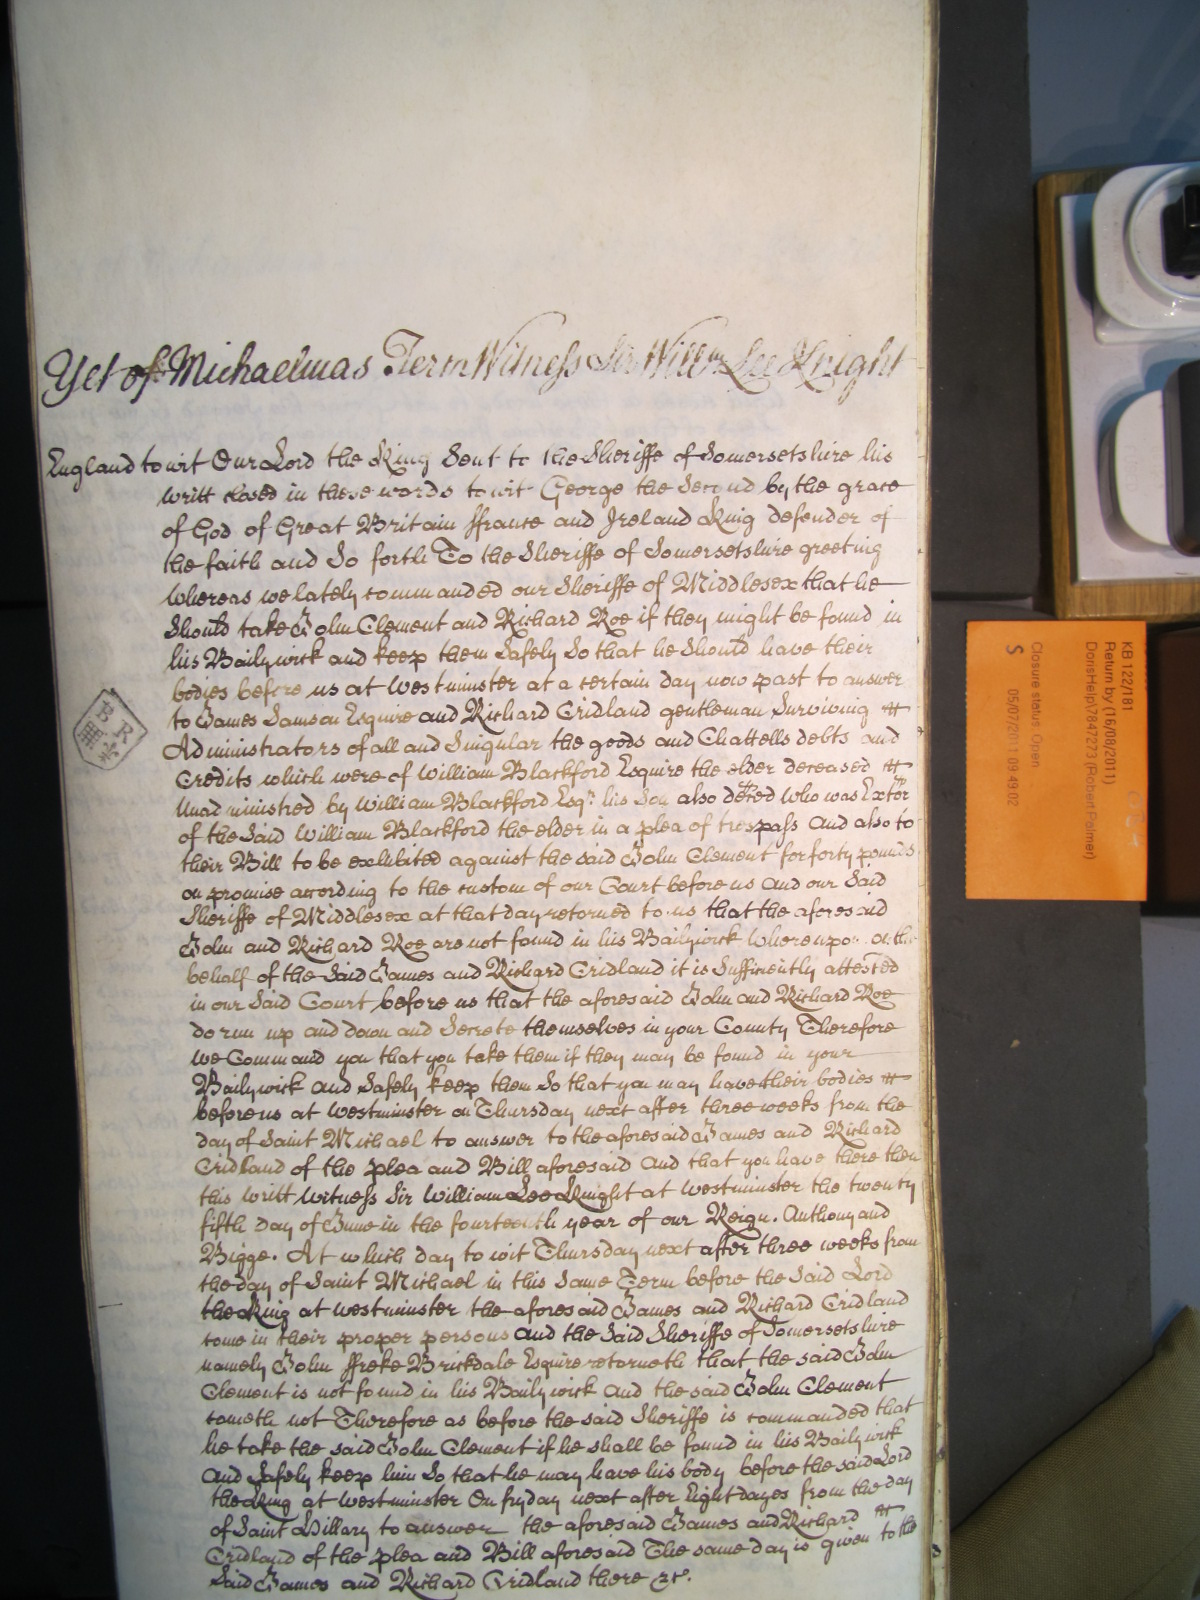 Yet of Michaelmas Term Witness Sir Will.m Lee Knight
England to wit Our Lord the King Sent to the Sheriffe of Somersetshire his
writt closed in these words to wit George the Second by the grace
of God of Great Britain ffrance and Ireland King defender of
the faith and So forth To the Sheriffe of Somersetshire greeting
Whereas we lately commanded our Sheriffe of Middlesex that he
Should take John Clement and Richard Roe if they might be found in
his Bailywick and keep them Safely So that he Should have their
bodies before us at Westminster at a certain day now past to answer
to James Samson Esquire and Richard Cridland gentleman Surviving
Administrators of all and Singular the goods and Chattells debts and
Credits which were of William Blackford Esquire the elder deceased
Unadministred by William Blackford Esqr. his Son also deced who was Exĩor
of the Said William Blackford the elder in a plea of trespass And also to
their Bill to be exhibited against the said John Clement for forty pounds
on promise according to the custom of our Court before us And our Said
Sheriffe of Middlesex at that day returned to us that the aforesaid
John and Richard Roe are not found in his Bailywick Whereupon on the
behalf of the Said James and Richard Cridland it is Sufficiently attested
in our Said Court before us that the aforesaid John and Richard Roe
do run up and down and Secrete themselves in your County Therefore
we Command you that you take them if they may be found in your
Bailywick and Safely keep them So that you may have their bodies
before us at Westminster on Thursday next after three weeks from the
day of Saint Michael to answer to the aforesaid James and Richard
Cridland of the plea and Bill aforesaid And that you have there then
this writt Witness Sir William Lee Knight at Westminster the twenty
fifth day of June in the fourteenth year of our Reign. Anthony and
Bigge. At which day to wit Thursday next after three weeks from
the day of Saint Michael in this Same Term before the Said Lord
the King at Westminster the aforesaid James and Richard Cridland
come in their proper persons And the Said Sheriffe of Somersetshire
namely John ffreke Brickdale Esquire returneth that the said John
Clement is not found in his Bailywick And the said John Clement
cometh not Therefore as before the said Sheriffe is commanded that
he take the said John Clement if he shall be found in his Bailywick
And Safely keep him So that he may have his body before the said Lord
the King at Westminster On fryday next after Eight dayes from the day
of Saint Hillary to answer the aforesaid James and Richard
Cridland of the plea and Bill aforesaid The same day is given to the
Said James and Richard Cridland there &c.
KB 122/181
Return by (16/08/2011)
DorisHelp\7847273 (Robert Palmer)
Closure status: Open
S
05/07/2011 09:49:02